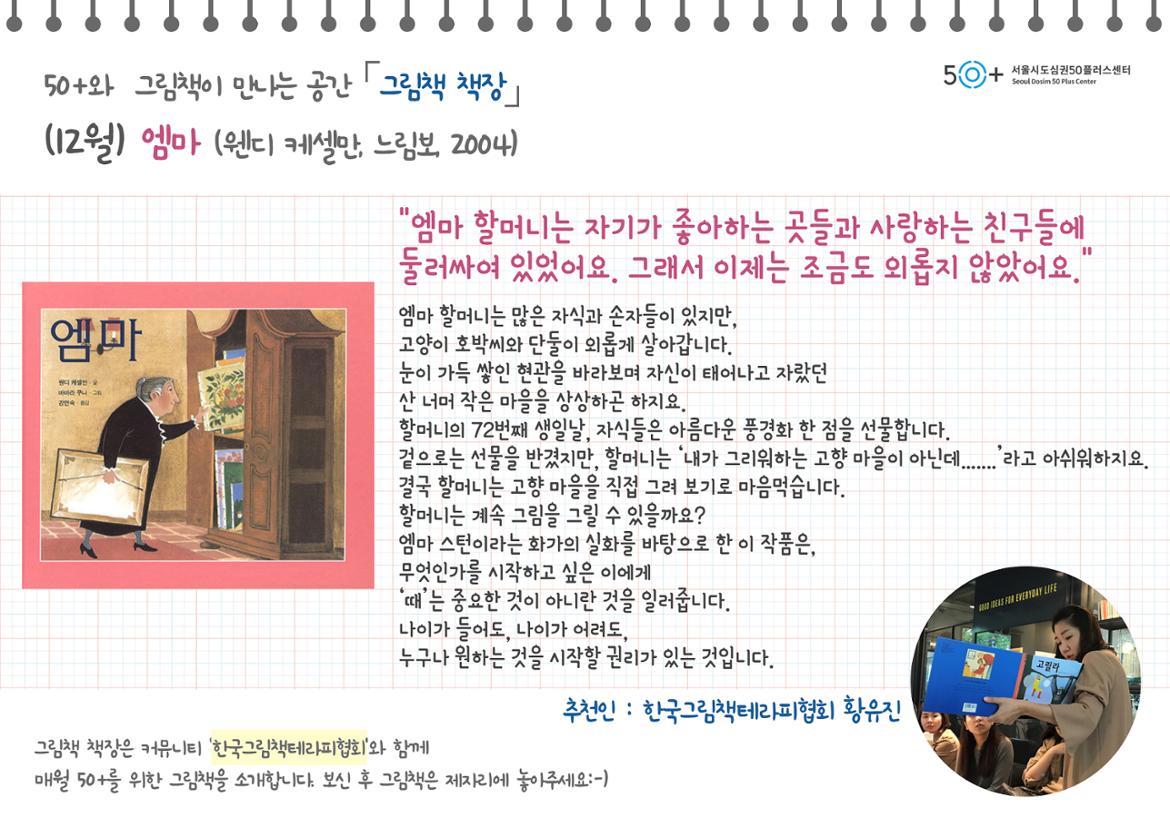 50+와 그림책이 만나는 공간 「그림책 책장」
50+ 서울시도심권50플러스센터
Seoul Dosim 50 Plus Center
(12월) 엠마 (웬디 케셀만, 느림보, 2004)
"엠마 할머니는 자기가 좋아하는 곳들과 사랑하는 친구들에
둘러싸여 있었어요. 그래서 이제는 조금도 외롭지 않았어요."
엠마
웬디 케셀만 · 글
바바라 쿠니 · 그림
강연숙 · 옮김
엠마 할머니는 많은 자식과 손자들이 있지만,
고양이 호박씨와 단둘이 외롭게 살아갑니다.
눈이 가득 쌓인 현관을 바라보며 자신이 태어나고 자랐던
산 너머 작은 마을을 상상하곤 하지요.
할머니의 72번째 생일날, 자식들은 아름다운 풍경화 한 점을 선물합니다.
겉으로는 선물을 반겼지만, 할머니는 ‘내가 그리워하는 고향 마을이 아닌데.......’라고 아쉬워하지요.
결국 할머니는 고향 마을을 직접 그려 보기로 마음먹습니다.
할머니는 계속 그림을 그릴 수 있을까요?
엠마 스턴이라는 화가의 실화를 바탕으로 한 이 작품은,
무엇인가를 시작하고 싶은 이에게
‘때’는 중요한 것이 아니란 것을 일러줍니다.
나이가 들어도, 나이가 어려도,
누구나 원하는 것을 시작할 권리가 있는 것입니다.
GOOD IDEAS FOR EVERYDAY LIFE
고릴라
추천인 : 한국그림책테라피협회 황유진
그림책 책장은 커뮤니티 '한국그림책테라피협회'와 함께
매월 50+를 위한 그림책을 소개합니다. 보신 후 그림책은 제자리에 놓아주세요:-)